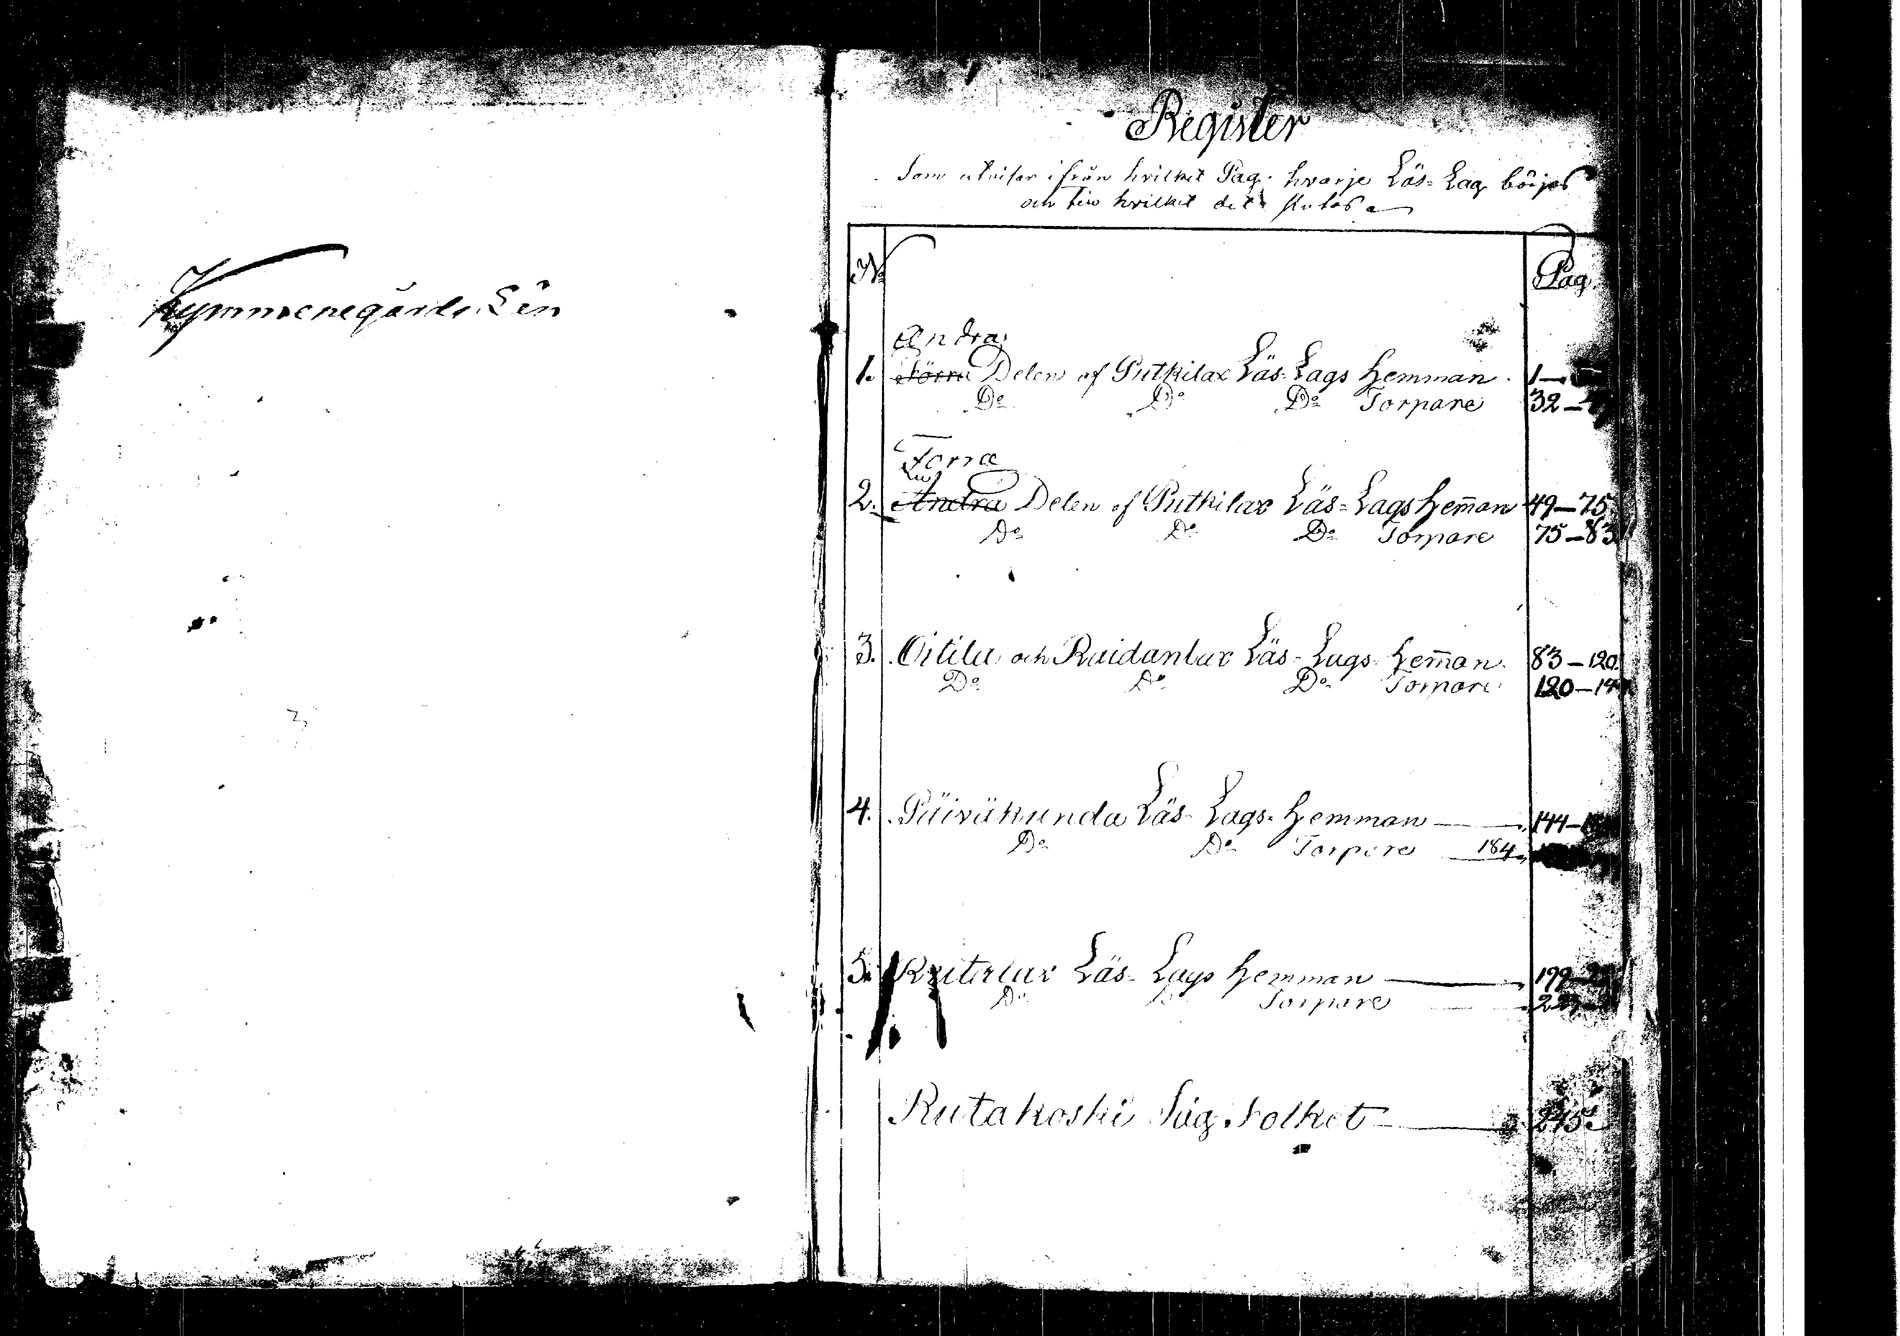 Kymmenegårds Län
Register
Som utvisar ifrån hvilket Pag. hvarje Läs-Lag börjas
och till hvilket det slutas
No Pag.
Andra
1. Förra Delen af Putkilax Läs-Lags Hemman 1—
Do Do Do Torpare 32—
Förra
2. Andra Delen af Putkilax Läs-Lags Hem̅an 49—75
Do Do Do Torpare 75—83
3. Oitila och Raidanlax Läs-Lags Hem̅an 83—120
Do Do Do Torpare 120—14
4. Päiväkunda Läs-Lags Hemman 144—
Do Do Torpare 184
5. Läs-Lags Hemman 199—
Do Do Torpare
Rutakoski Såg Folket 245